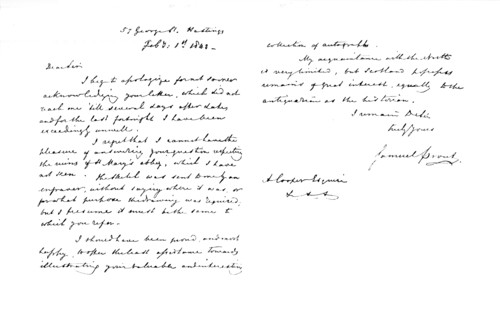 57 George St. Hastings
Feby. 1st 1843 -
Dear Sir
I beg to apologize for not sooner
acknowledging your letter, which did not
reach me till several days after date
and for the last fortnight I have been
exceedingly unwell.
I regret that I cannot have the
pleasure of answering your question respecting
the ruins of St. Mary's abbey, which I have
not seen. The sketch was sent to me by an
engraver, without saying where it was, or
for what purpose the drawing was required,
but I presume it must be the same to
which you refer.
I should have been proud, and most
happy, to offer the least assistance towards
illustrating your valuable and interesting
collection of autographs.
My acquaintance with the North
is very limited, but Scotland possesses
remains of great interest, equally to the
antiquarian as the historian.
I remain Dr Sir
truly yours
Samuel Prout
A Cooper Esquire